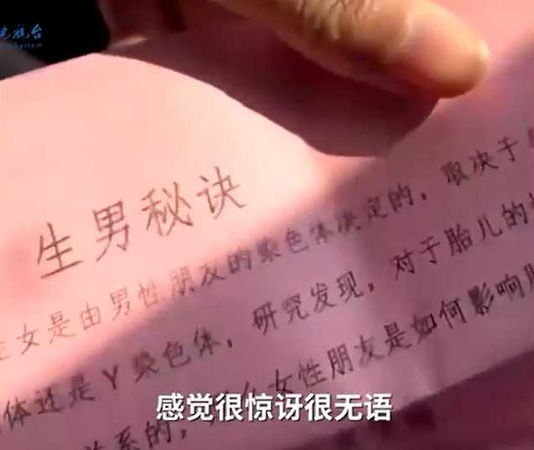 生男秘诀
女是由男性朋友的染色体决定的，取决于
体还是Y染色体，研究发现，对于胎儿的
关系的，女性朋友是如何影响
感觉很惊讶很无语